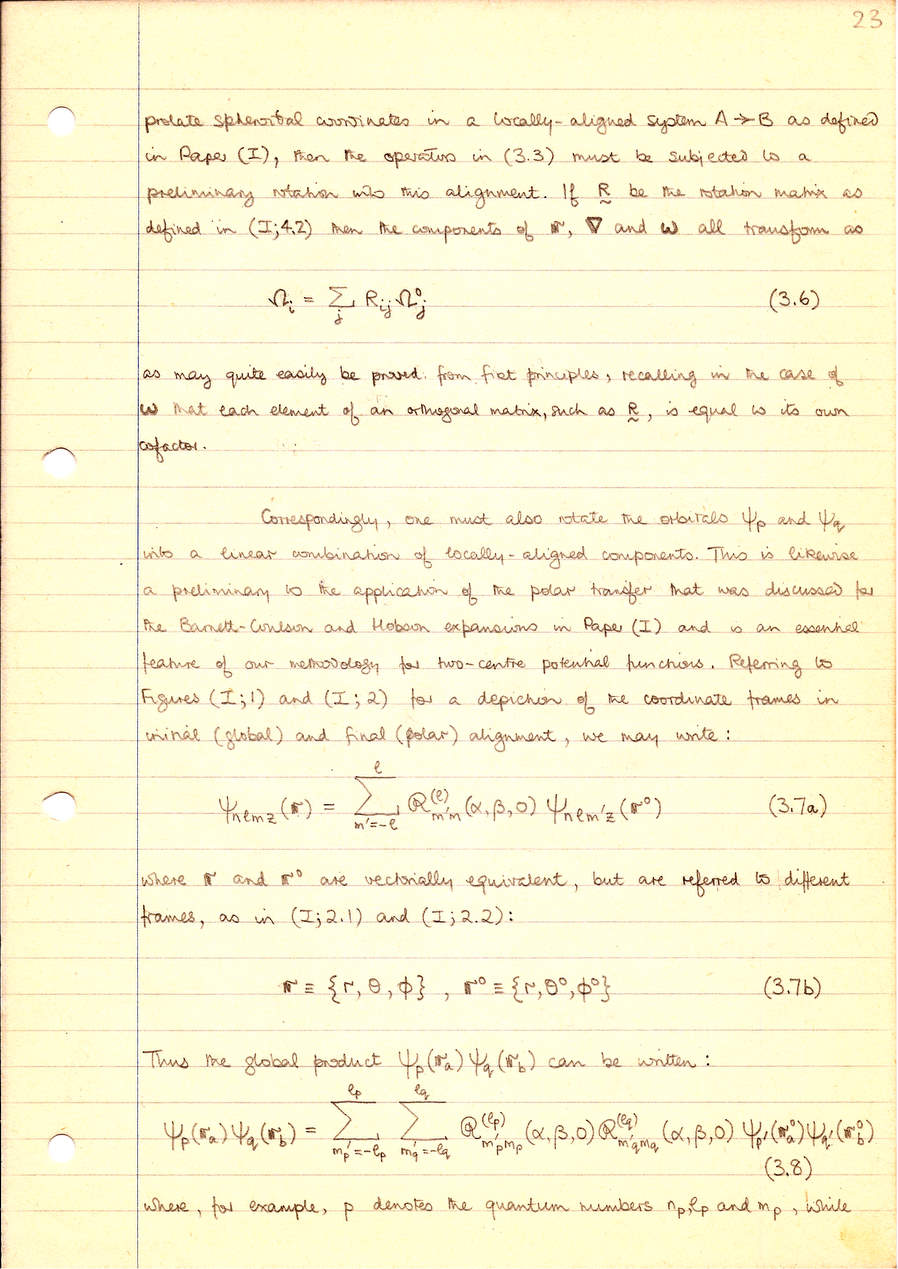 23
prolate spheroidal coordinates in a locally-aligned system A → B as defined
in Paper (I), then the operators in (3.3) must be subjected to a
preliminary rotation into this alignment. If R be the rotation matrix as
defined in (I;4.2) then the components of 𝐫, ∇ and ω all transform as
Ωᵢ = Σⱼ Rᵢⱼ Ω⁰ⱼ (3.6)
as may quite easily be proved from first principles, recalling in the case of
ω that each element of an orthogonal matrix, such as R, is equal to its own
cofactor.
Correspondingly, one must also rotate the orbitals ψp and ψq
into a linear combination of locally-aligned components. This is likewise
a preliminary to the application of the polar transfer that was discussed for
the Barnett-Coulson and Hobson expansions in Paper (I) and is an essential
feature of our methodology for two-centre potential functions. Referring to
Figures (I;1) and (I;2) for a depiction of the coordinate frames in
initial (global) and final (polar) alignment, we may write:
ψnℓmz(𝐫) = Σ_{m'=-ℓ}^{ℓ} ℝ^{(ℓ)}_{m'm}(α,β,0) ψnℓm'z(𝐫⁰) (3.7a)
where 𝐫 and 𝐫⁰ are vectorially equivalent, but are referred to different
frames, as in (I;2.1) and (I;2.2):
𝐫 ≡ {r, θ, φ} , 𝐫⁰ ≡ {r, θ⁰, φ⁰} (3.7b)
Thus the global product ψp(𝐫a)ψq(𝐫b) can be written:
ψp(𝐫a)ψq(𝐫b) = Σ_{m'p=-ℓp}^{ℓp} Σ_{m'q=-ℓq}^{ℓq} ℝ^{(ℓp)}_{m'pmp}(α,β,0) ℝ^{(ℓq)}_{m'qmq}(α,β,0) ψp'(𝐫⁰a)ψq'(𝐫⁰b)
(3.8)
where, for example, p denotes the quantum numbers np, ℓp and mp, while